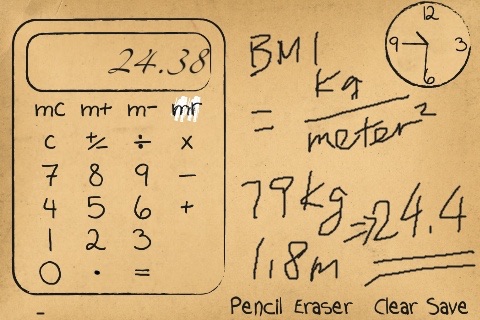 24.38
mc m+ m- mr
c +/- ÷ x
7 8 9 -
4 5 6 +
1 2 3
0 . =
BMI
= kg
meter²
79kg
1.8m
⇒24.4
12
9 3
6
Pencil Eraser Clear Save